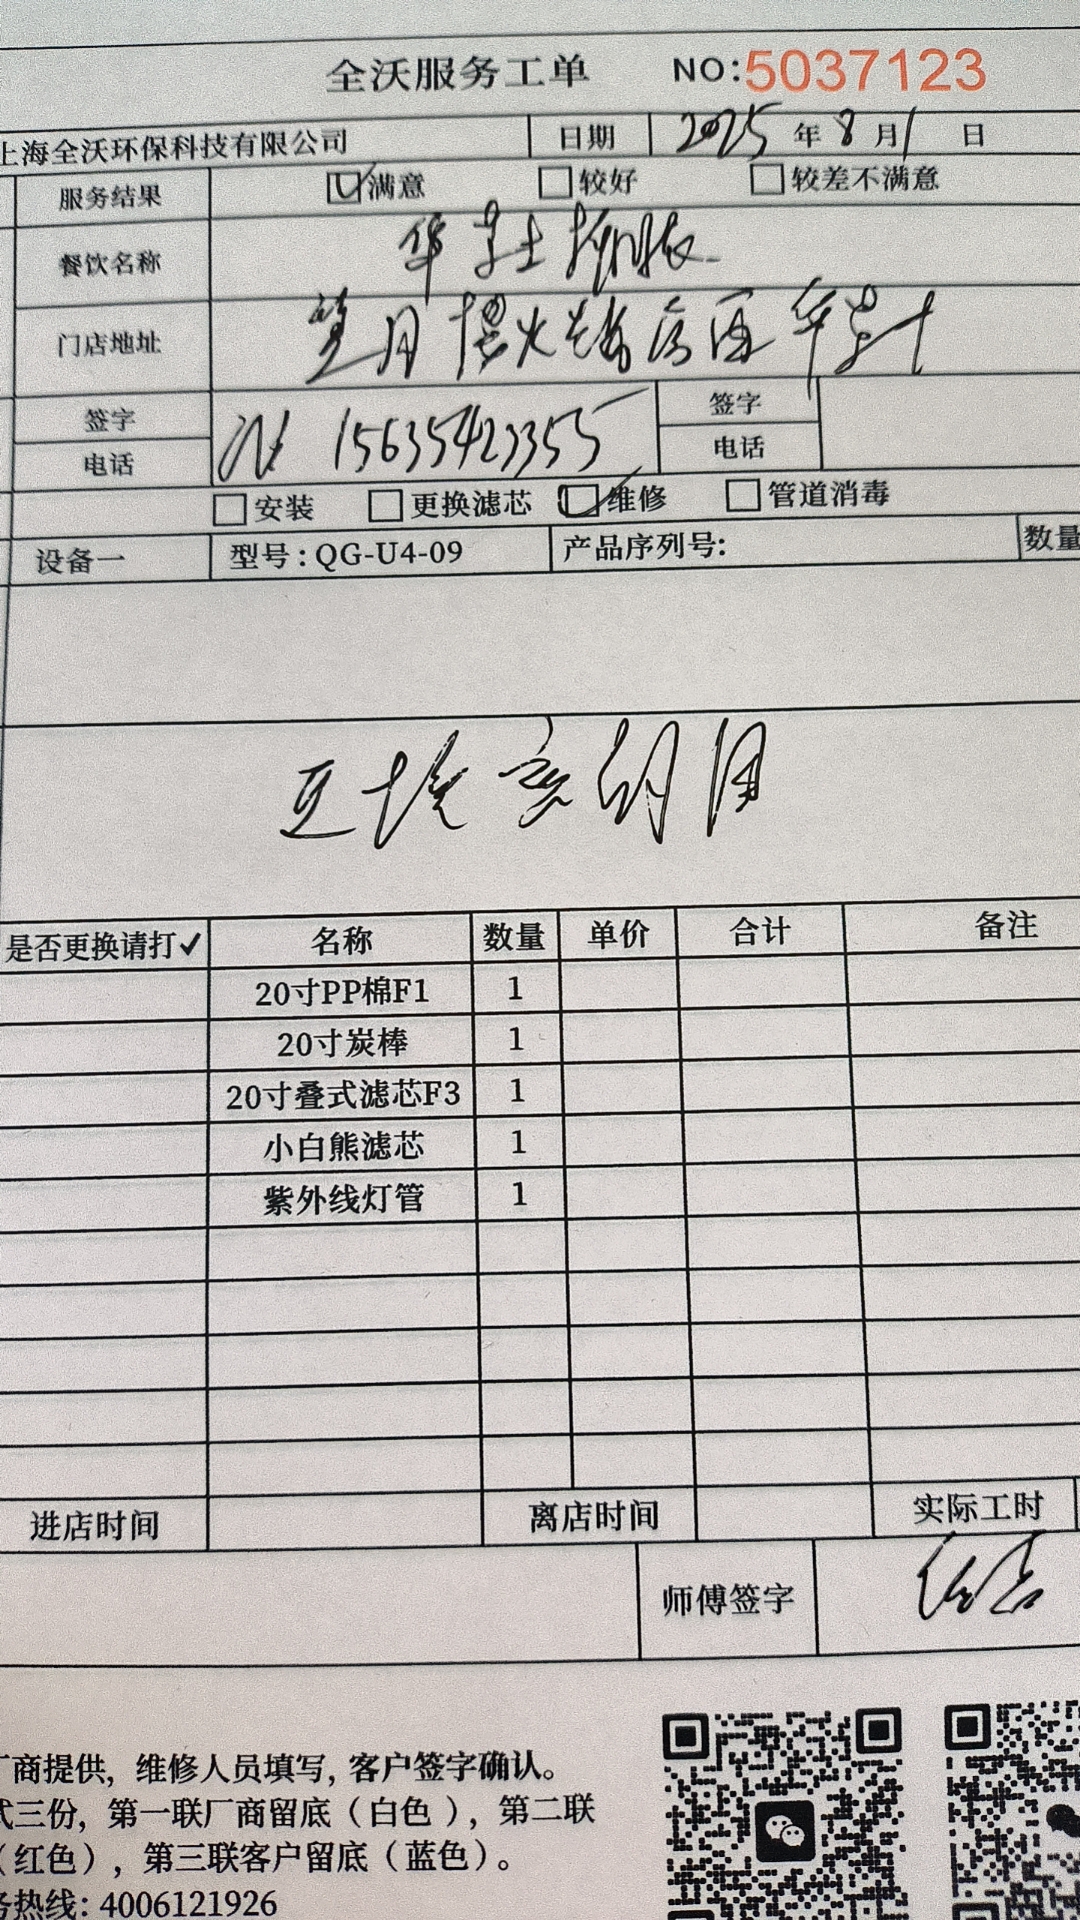 全沃服务工单 NO:5037123
上海全沃环保科技有限公司 日期 2025 年 8 月 1 日
服务结果 满意 较好 较差不满意
餐饮名称 华
门店地址
签字 签字
电话 15635423355 电话
安装 更换滤芯 维修 管道消毒
设备一 型号:QG-U4-09 产品序列号: 数量
是否更换请打✓ 名称 数量 单价 合计 备注
20寸PP棉F1 1
20寸炭棒 1
20寸叠式滤芯F3 1
小白熊滤芯 1
紫外线灯管 1
进店时间 离店时间 实际工时
师傅签字
厂商提供, 维修人员填写, 客户签字确认。
式三份, 第一联厂商留底(白色), 第二联
(红色), 第三联客户留底(蓝色)。
务热线: 4006121926